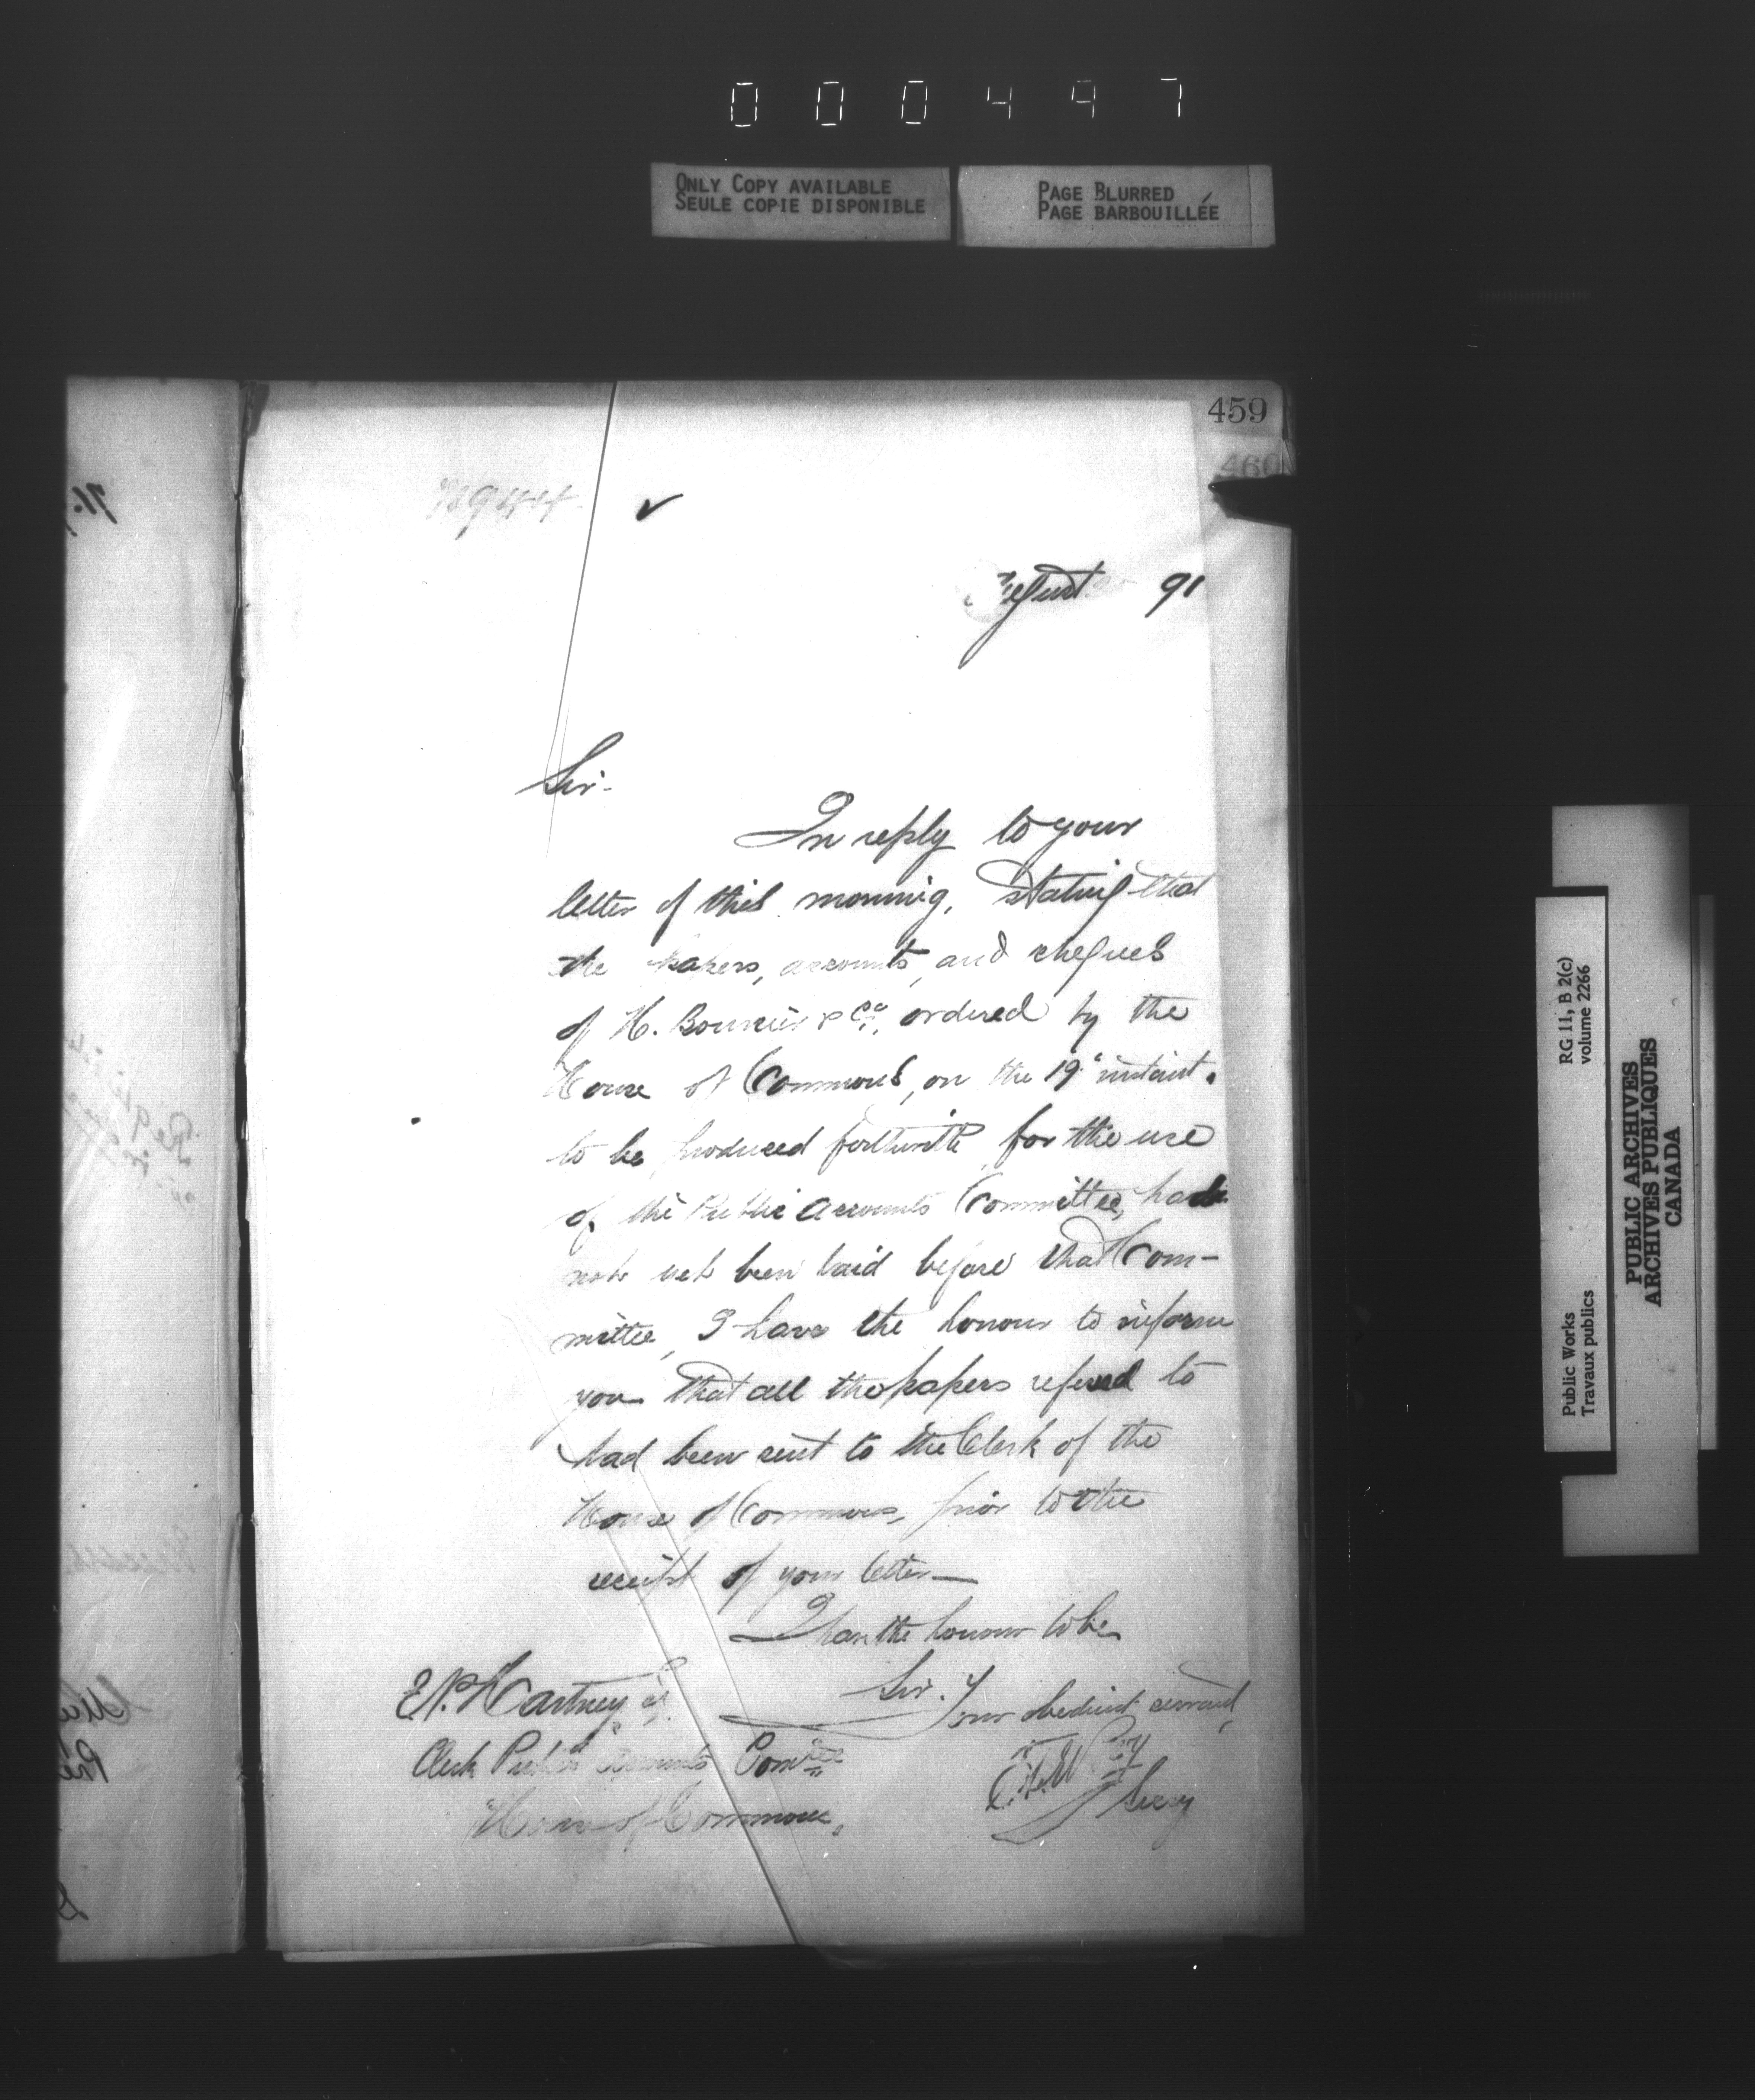 000497
ONLY COPY AVAILABLE
SEULE COPIE DISPONIBLE
PAGE BLURRED
PAGE BARBOUILLÉE
459
460
August 91
Sir-
In reply to your
letter of this morning, stating that
the papers, accounts, and cheques
of H. & Co, ordered by the
House of Commons, on the 19" instant.
to be produced forthwith, for the use
of the Public Accounts Committee, had
not yet been laid before that Com-
mittee, I have the honour to inform
you that all the papers refered to
had been sent to the Clerk of the
House of Commons, prior to the
receipt of your letter—
I have the honour to be
Sir. Your obedient servant,
E. P. Hartney
Clerk Public Accounts Comtee
House of Commons.
Secy
RG 11, B 2(c)
volume 2266
Public Works
Travaux publics
PUBLIC ARCHIVES
ARCHIVES PUBLIQUES
CANADA